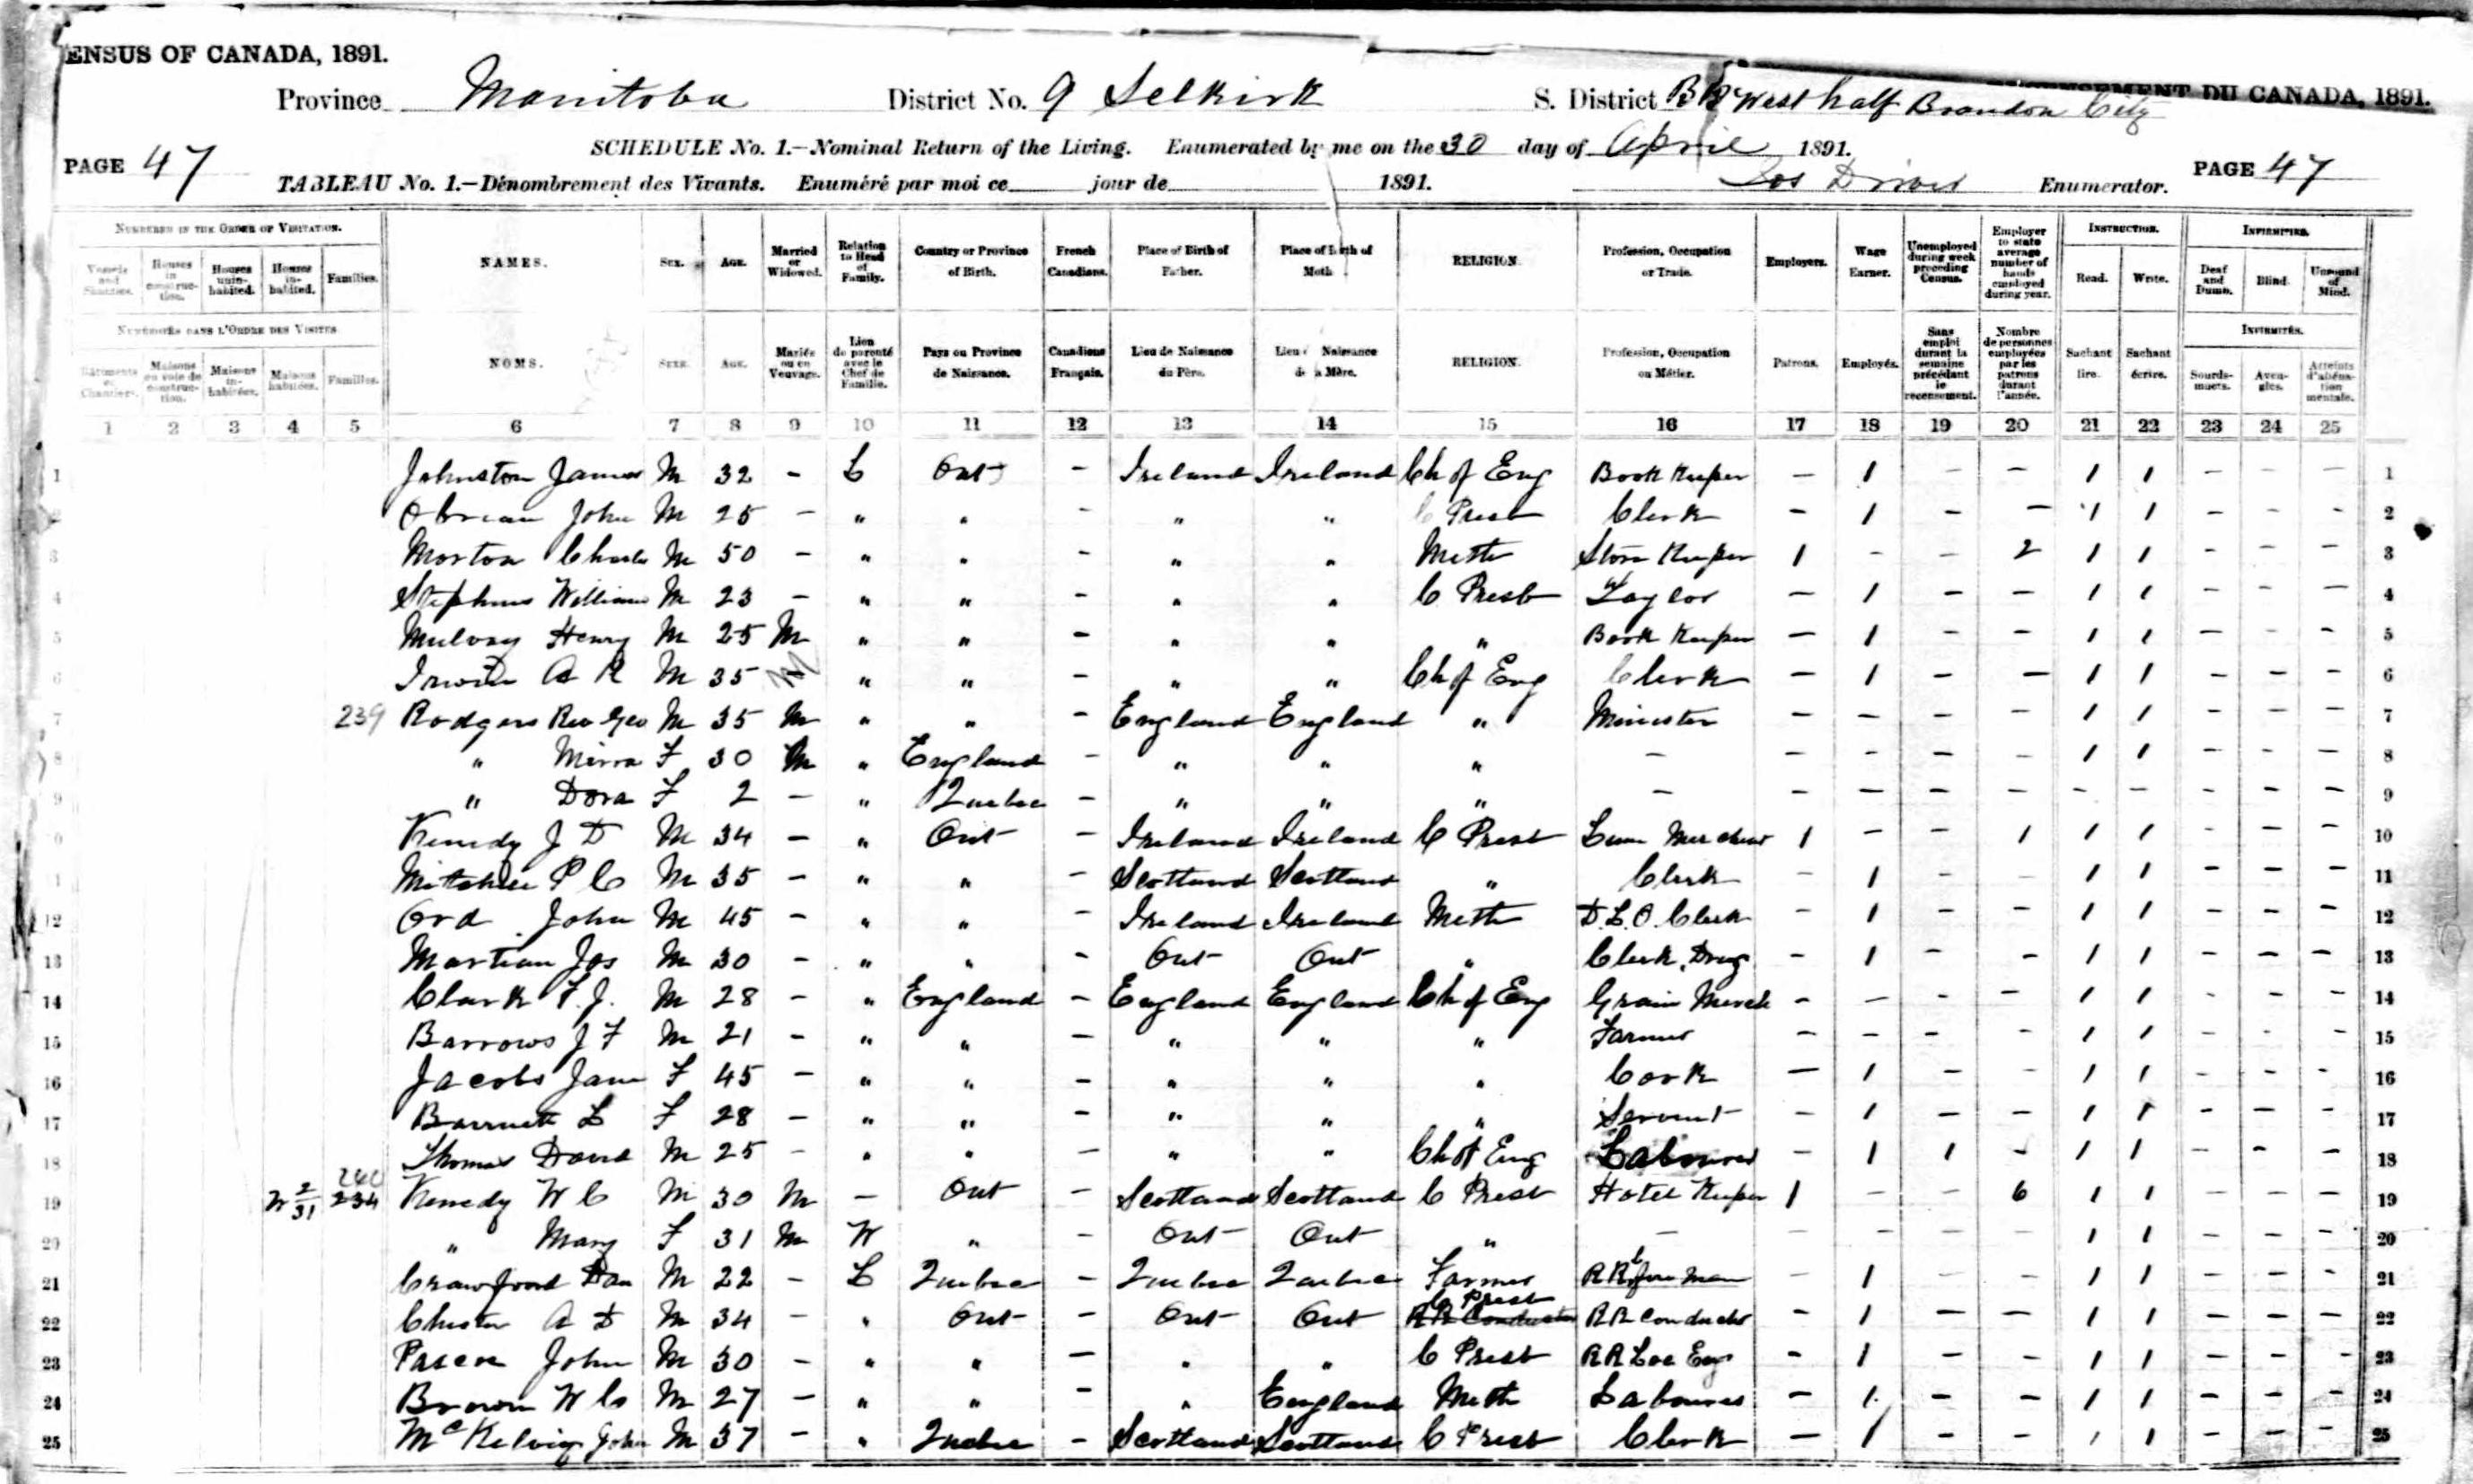 ENSUS OF CANADA, 1891.
CENSEMENT DU CANADA, 1891.
Province Manitoba District No. 9 Selkirk S. District B West half Brandon City
SCHEDULE No. 1.—Nominal Return of the Living. Enumerated by me on the 30 day of April 1891.
PAGE 47 TABLEAU No. 1.—Dénombrement des Vivants. Enuméré par moi ce jour de 1891. Enumerator. PAGE 47
NUMBERED IN THE ORDER OF VISITATION. Vessels and Shanties. Houses in construction. Houses uninhabited. Houses inhabited. Families. NAMES. SEX. AGE. Married or Widowed. Relation to Head of Family. Country or Province of Birth. French Canadians. Place of Birth of Father. Place of Birth of Moth RELIGION. Profession, Occupation or Trade. Employers. Wage Earner. Unemployed during week preceding Census. Employer to state average number of hands employed during year. INSTRUCTION. Read. Write. INFIRMITIES. Deaf and Dumb. Blind. Unsound of Mind.
NUMÉROTÉS DANS L'ORDRE DES VISITES Bâtiments et Chantiers. Maisons en voie de construction. Maisons inhabitées. Maisons habitées. Familles. NOMS. SEXE. AGE. Mariés ou en Veuvage. Lien de parenté avec le Chef de Famille. Pays ou Province de Naissance. Canadiens Français. Lieu de Naissance du Père. Lieu Naissance de a Mère. RELIGION. Profession, Occupation ou Métier. Patrons. Employés. Sans emploi durant la semaine précédant le recensement. Nombre de personnes employées par les patrons durant l'année. Sachant lire. Sachant écrire. INFIRMITÉS. Sourds-muets. Aveugles. Atteints d'aliénation mentale.
1 2 3 4 5 6 7 8 9 10 11 12 13 14 15 16 17 18 19 20 21 22 23 24 25
1 Johnston James M 32 - L Ont - Ireland Ireland Ch of Eng Book Keeper - 1 - - 1 1 - - - 1
2 Obrian John M 25 - " " - " " C Presb Clerk - 1 - - 1 1 - - - 2
3 Morton Charles M 50 - " " - " " Meth Store Keeper 1 - - 2 1 1 - - - 3
4 Stephens William M 23 - " " - " " C Presb Taylor - 1 - - 1 1 - - - 4
5 Mulvey Henry M 25 M " " - " " " Book Keeper - 1 - - 1 1 - - - 5
6 Irwin A R M 35 M " " - " " Ch of Eng Clerk - 1 - - 1 1 - - - 6
7 239 Rodgers Rev Geo M 35 M " " - England England " Minister - - - - 1 1 - - - 7
8 " Mirra F 30 M " England - " " " - - - - - 1 1 - - - 8
9 " Dora F 2 - " Quebec - " " " - - - - - - - - - - 9
0 Kenedy J D M 34 - " Ont - Ireland Ireland C Presb 1 - - 1 1 1 - - - 10
1 P C M 35 - " " - Scotland Scotland " Clerk - 1 - - 1 1 - - - 11
12 Ord John M 45 - " " - Ireland Ireland Meth D.L.O. Clerk - 1 - - 1 1 - - - 12
13 Jos M 30 - " " - Ont Ont " Clerk, Drug - 1 - - 1 1 - - - 13
14 Clark F. J. M 28 - " England - England England Ch of Eng Grain Merch - - - - 1 1 - - - 14
15 Barrows J F M 21 - " " - " " " Farmer - - - - 1 1 - - - 15
16 Jacobs Jane F 45 - " " - " " " Cook - 1 - - 1 1 - - - 16
17 Barrnett L F 28 - " " - " " " Servent - 1 - - 1 1 - - - 17
18 Thomas David M 25 - " " - " " Ch of Eng Labourer - 1 1 - 1 1 - - - 18
19 W 2/31 240 234 Kenedy W C M 30 M - Ont - Scotland Scotland C Presb Hotel Keeper 1 - - 6 1 1 - - - 19
20 " Mary F 31 M W " - Ont Ont " - - - - - 1 1 - - - 20
21 Crawford Dan M 22 - L Quebec - Quebec Quebec Farmer RR fore man - 1 - - 1 1 - - - 21
22 Chester A D M 34 - " Ont - Ont Ont C Presb RR Conductor RR Conductor - 1 - - 1 1 - - - 22
23 Pascoe John M 30 - " " - " " C Presb RR Loc Eng - 1 - - 1 1 - - - 23
24 Brown W C M 27 - " " - " England Meth Labourer - 1 - - 1 1 - - - 24
25 McKelvie John M 37 - " Quebec - Scotland Scotland C Presb Clerk - 1 - - 1 1 - - - 25